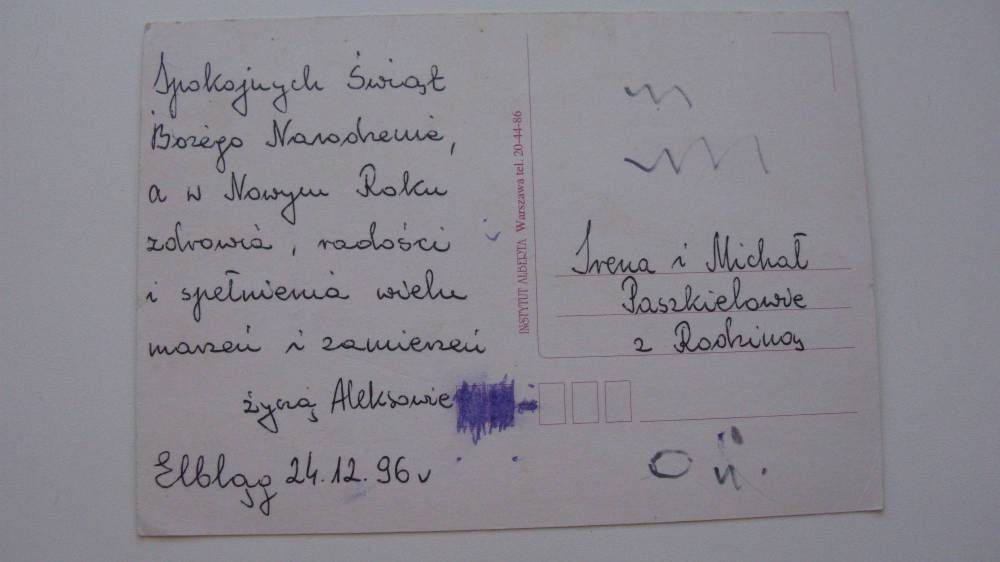 Spokojnych Świąt
Bożego Narodzenia,
a w Nowym Roku
zdrowia, radości
i spełnienia wielu
marzeń i zamierzeń
życzą Aleksowie
Elbląg 24.12.96 r
INSTYTUT ALBERTA Warszawa tel. 20-44-86
Irena i Michał
Paszkielowie
z Rodziną